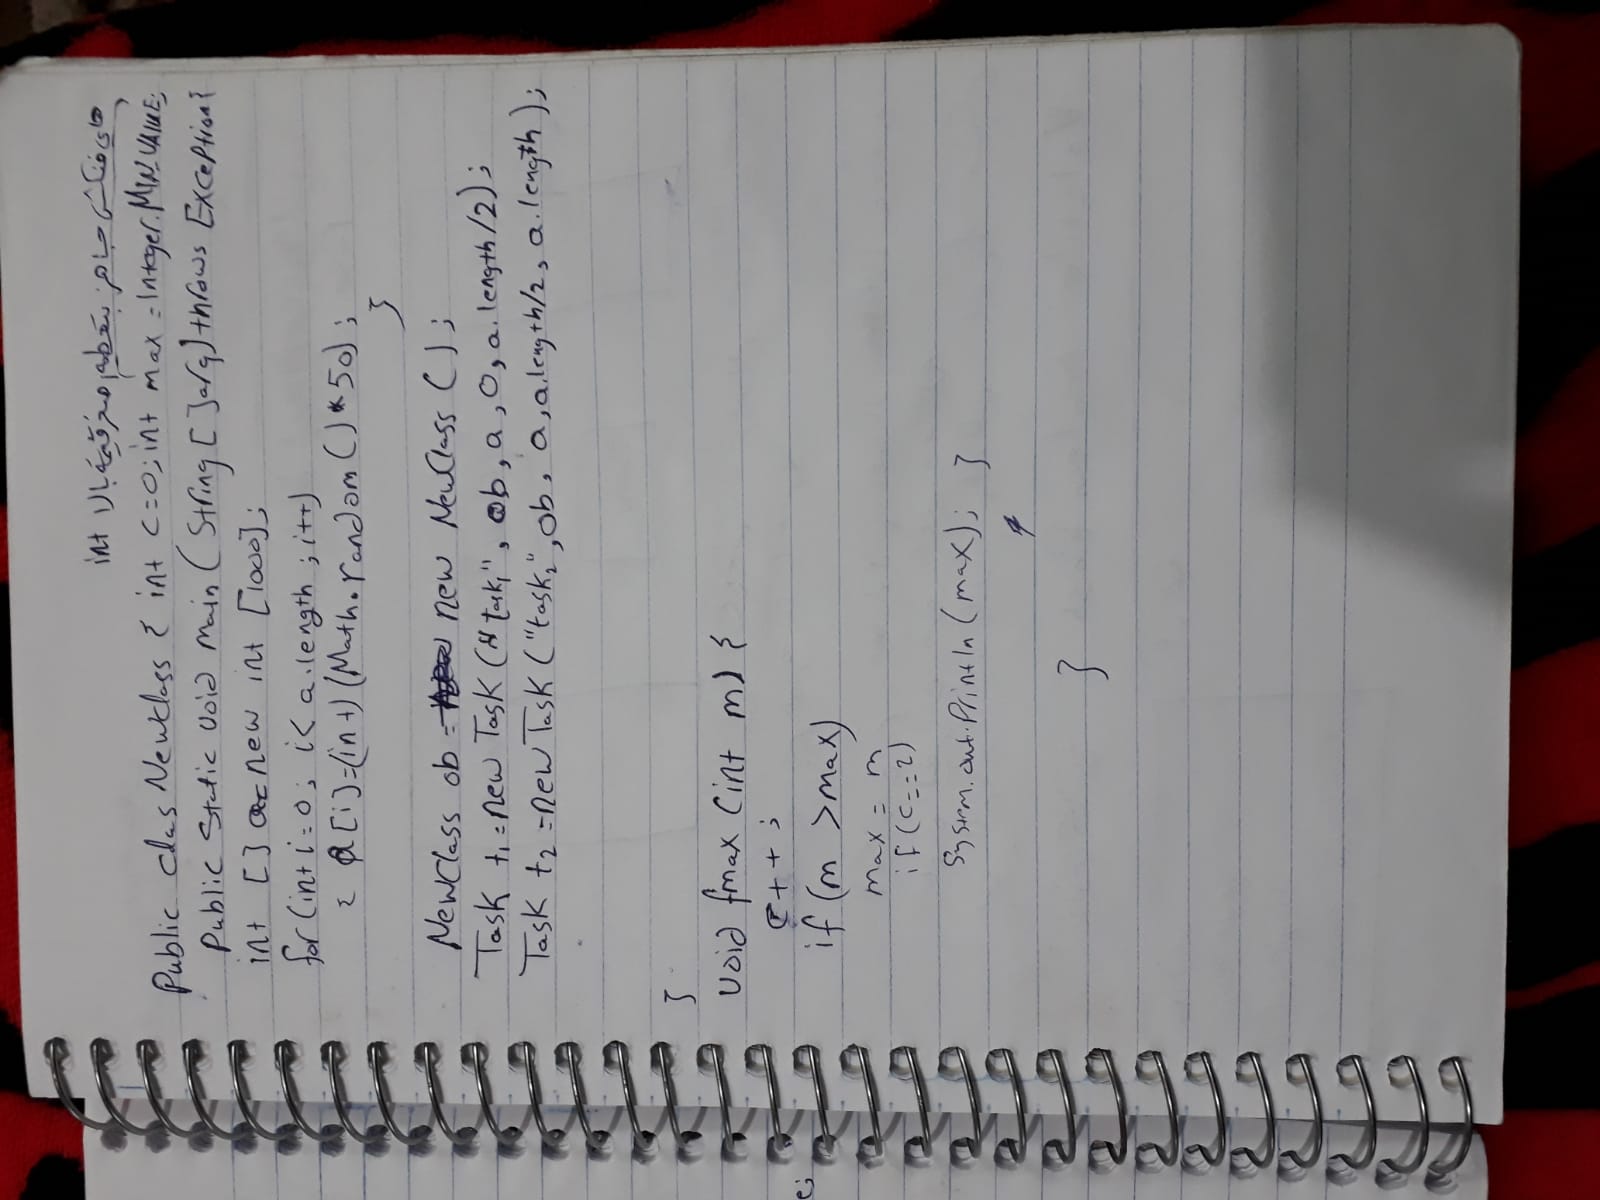 int
Public clas Newclass { int c=0; int max = Integer.MIN_VALUE;
Public Static void main (String [] arg) throws Exception{
int [] a= new int [1000];
for (int i=0; i< a.length ; i++)
{ a[i]=(int) (Math.random() * 50);
}
NewClass ob = new NewClass ();
Task t1 = new Task ("task1", ob, a, 0, a.length/2);
Task t2 = new Task ("task2", ob, a, a.length/2, a.length);
}
void fmax (int m) {
C++;
if (m >max)
max = m
if (c==2)
System.out.Println (max); }
}
e;